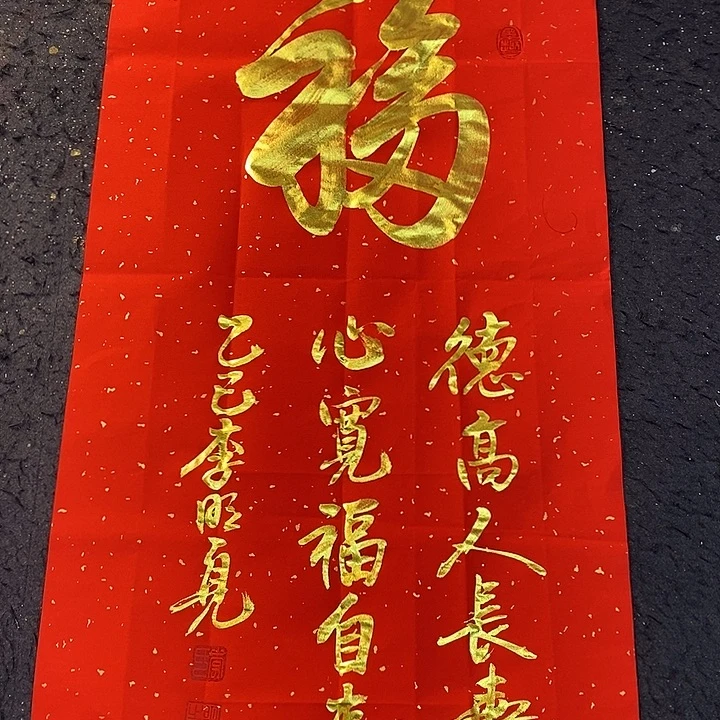 福
德高人長壽
心寬福自
乙巳李明亮